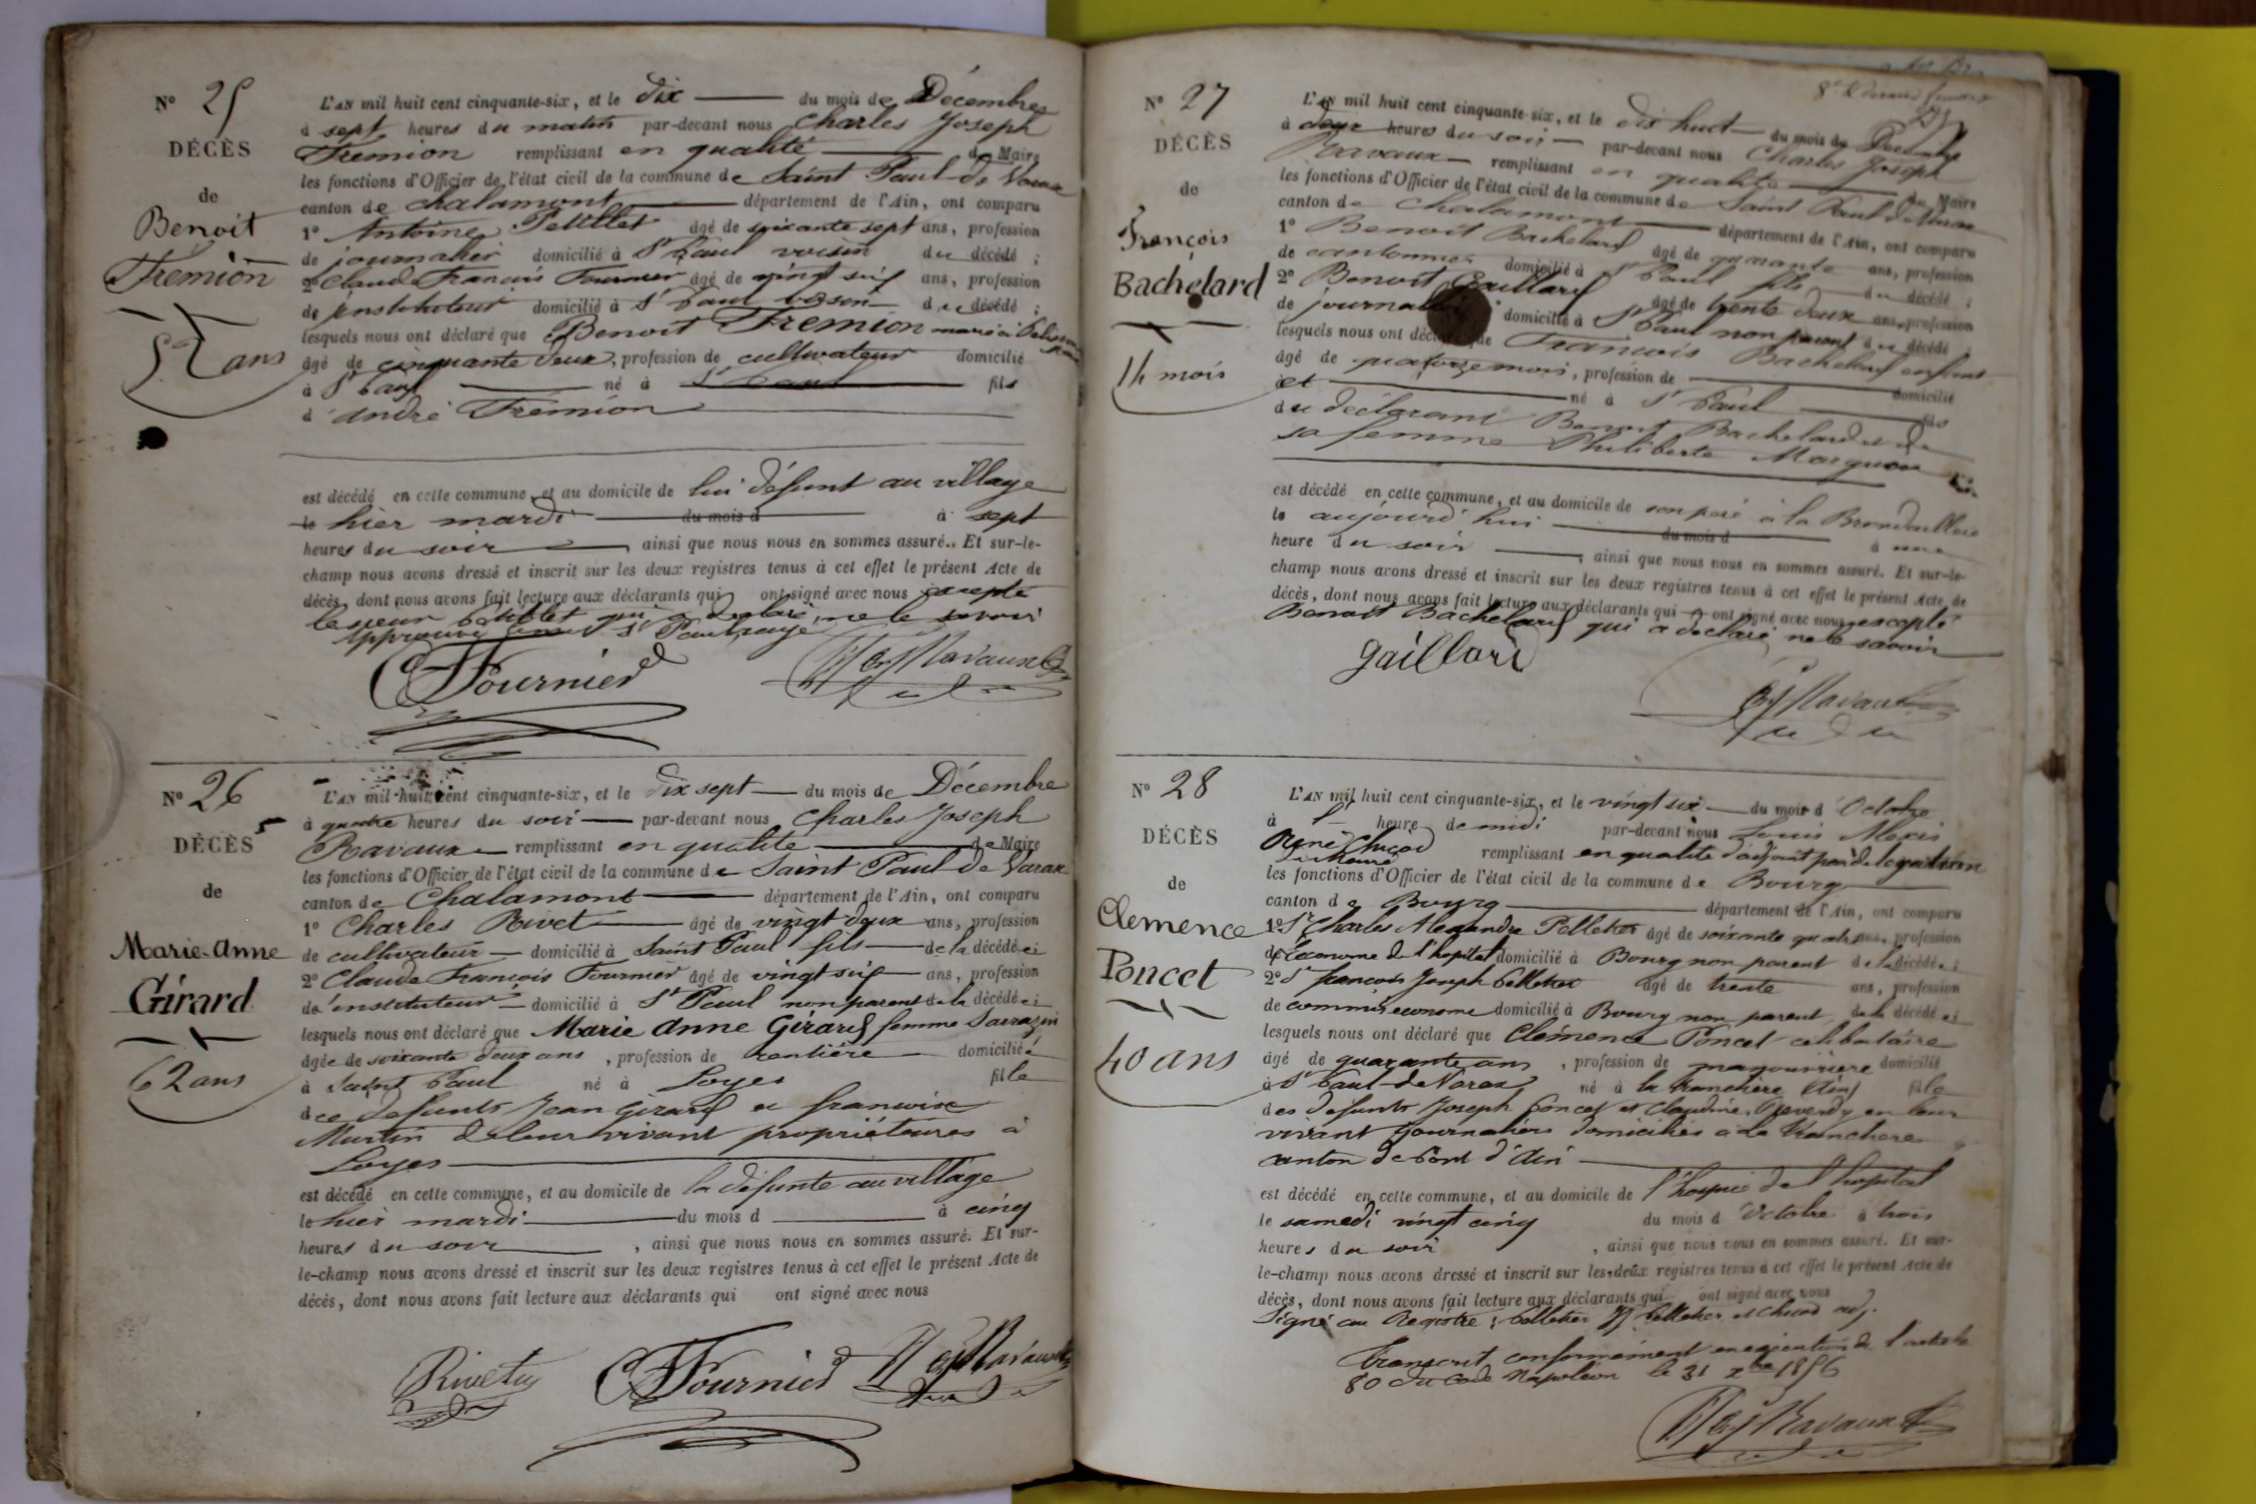 N° 25
DÉCÈS
de
Benoit
Frémion
52 ans
L'AN mil huit cent cinquante-six, et le dix du mois de Décembres
à sept heures du matin par-devant nous Charles Joseph
Fremion remplissant en qualité de Maire
les fonctions d'Officier de l'état civil de la commune de Saint Paul de Varax
canton de Chalamont département de l'Ain, ont comparu
1° Antoine Petillet âgé de soixante sept ans, profession
de journalier domicilié à St Paul voisin du décédé ;
2° Claude François Fournier âgé de vingt six ans, profession
de instituteur domicilié à St Paul voisin du décédé ;
lesquels nous ont déclaré que Benoit Fremion marié à
âgé de cinquante deux, profession de cultivateur domicilié
à St Paul né à St Paul fils
d'andré Fremion
est décédé en cette commune, et au domicile de lui défunt au village
le hier mardi du mois d à sept
heures du soir ainsi que nous nous en sommes assuré. Et sur-le-
champ nous avons dressé et inscrit sur les deux registres tenus à cet effet le présent Acte de
décès, dont nous avons fait lecture aux déclarants qui ont signé avec nous excepté
le sieur Petillet qui a déclaré ne le savoir
Approuvé St Paul rayé
CFournier Ravaux
N° 26
DÉCÈS
de
Marie-Anne
Girard
62 ans
L'AN mil huit cent cinquante-six, et le dix sept du mois de Décembre
à quatre heures du soir par-devant nous Charles Joseph
Ravaux remplissant en qualité de Maire
les fonctions d'Officier de l'état civil de la commune de Saint Paul de Varax
canton de Chalamont département de l'Ain, ont comparu
1° Charles Rivet âgé de vingt deux ans, profession
de cultivateur domicilié à Saint Paul fils de la décédée ;
2° Claude François Fournier âgé de vingt six ans, profession
de instituteur domicilié à St Paul non parent de la décédée ;
lesquels nous ont déclaré que Marie Anne Girard femme Sarrazin
âgée de soixante deux ans, profession de rentière domiciliée
à Saint Paul né à Loyes fille
de défunts Jean Girard et francoise
Martin de leur vivant propriétaires à
Loyes
est décédé en cette commune, et au domicile de la défunte au village
le hier mardi du mois d à cinq
heures du soir, ainsi que nous nous en sommes assuré. Et sur-
le-champ nous avons dressé et inscrit sur les deux registres tenus à cet effet le présent Acte de
décès, dont nous avons fait lecture aux déclarants qui ont signé avec nous
Rivet CFournier Ravaux
N° 27
DÉCÈS
de
François
Bachelard
14 mois
L'AN mil huit cent cinquante-six, et le dix huit du mois de Décembre
à deux heures du soir par-devant nous Charles Joseph
Ravaux remplissant en qualité de Maire
les fonctions d'Officier de l'état civil de la commune de Saint Paul de Varax
canton de Chalamont département de l'Ain, ont comparu
1° Benoit Bachelard âgé de quarante ans, profession
de cantonnier domicilié à St Paul du décédé ;
2° Benoit Gaillard âgé de trente deux ans, profession
de journalier domicilié à St Paul non parent du décédé
lesquels nous ont déclaré que François Bachelard enfant
âgé de quatorze mois, profession de domicilié
et né à St Paul fils
du déclarant Benoit Bachelard et de
sa femme Philiberte
est décédé en cette commune, et au domicile de son père à la
le aujourd'hui du mois d à une
heure du soir, ainsi que nous nous en sommes assuré. Et sur-le-
champ nous avons dressé et inscrit sur les deux registres tenus à cet effet le présent Acte de
décès, dont nous avons fait lecture aux déclarants qui ont signé avec nous excepté
Benoit Bachelard qui a déclaré ne le savoir
gaillard
Ravaux
N° 28
DÉCÈS
de
Clemence
Poncet
40 ans
L'AN mil huit cent cinquante-six, et le vingt six du mois d'Octobre
à heure de midi par-devant nous Louis Alexis
René Chicod remplissant en qualité d'adjoint par délégation
du maire
les fonctions d'Officier de l'état civil de la commune de Bourg
canton de Bourg département de l'Ain, ont comparu
1° Sr Charles Alexandre Pelletier âgé de soixante quatre ans, profession
d'Econome de l'hopital domicilié à Bourg non parent de la décédée ;
2° Sr francois Joseph Pelletier âgé de trente ans, profession
de commis econome domicilié à Bourg non parent de la décédée
lesquels nous ont déclaré que Clémence Poncet celibataire
âgé de quarante ans, profession de manouvrière domicilié
à St Paul de Varax né à la tranchère (Ain) fille
des défunts Joseph Poncet et Claudine Reverdy en leur
vivant journaliers domiciliés à la Tranchere
canton de Pont d'Ain
est décédé en cette commune, et au domicile de l'hospice de l'hopital
le samedi vingt cinq du mois d'Octobre à trois
heures du soir, ainsi que nous nous en sommes assuré. Et sur-
le-champ nous avons dressé et inscrit sur les deux registres tenus à cet effet le présent Acte de
décès, dont nous avons fait lecture aux déclarants qui ont signé avec nous
Signé au Registre : Pelletier Pelletier et Chicod adj.
Transcrit conformément en exécution de l'article
80 du Code Napoléon le 31 xbre 1856
Ravaux